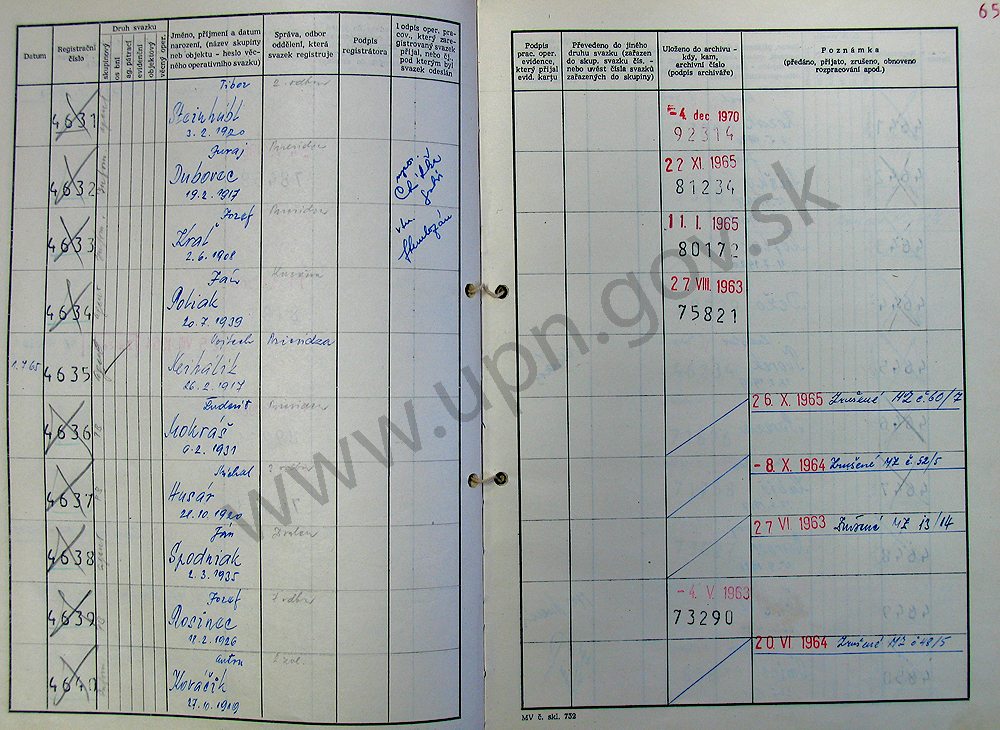 65
Druh svazku
Datum
Registrační číslo
skupinový
osobní
ag. pátrací
evidenční
objektový
věcný oper.
Jméno, příjmení a datum narození, (název skupiny neb objektu - heslo věcného operativního svazku)
Správa, odbor oddělení, která svazek registruje
Podpis registrátora
Podpis oper. pracov., který zaregistrovaný svazek přijal neb č. j. pod kterým byl svazek odeslán
Podpis prac. oper. evidence, který přijal evid. kartu
Převedeno do jiného druhu svazku (zařazen do skup. svazku čís. - nebo uvést čísla svazků zařazených do skupiny)
Uloženo do archivu - kdy, kam, archivní číslo (podpis archiváře)
Poznámka
(předáno, přijato, zrušeno, obnoveno rozpracování apod.)
4631
Tibor
Steinhübl
3.2.1920
2. odbor
-4. dec 1970
92314
4632
Juraj
Dubovec
19.2.1917
Prievidza
22 XI. 1965
81234
4633
Jozef
Kráľ
2.6.1908
Prievidza
11. I. 1965
80172
4634
Ján
Poliak
20.7.1939
27. VIII. 1963
75821
1.7.65
4635
Vojtech
26.2.1917
Prievidza
4636
Mokráš
9.2.1931
Prievidza
26. X. 1965 Zrušené MZ č 60/7
4637
Michal
Husár
28.10.1920
2 odbor
-8. X. 1964 Zrušené MZ č. 52/5
4638
Ján
Spodniak
2.3.1935
Zvolen
27 VI 1963 Zrušené MZ 13/14
4639
Jozef
Rosinec
18.2.1926
-4. V. 1963
73290
Anton
Kováčik
27.10.1919
20. VI 1964 Zrušené MZ č 48/5
MV č. skl. 752
www.upn.gov.sk